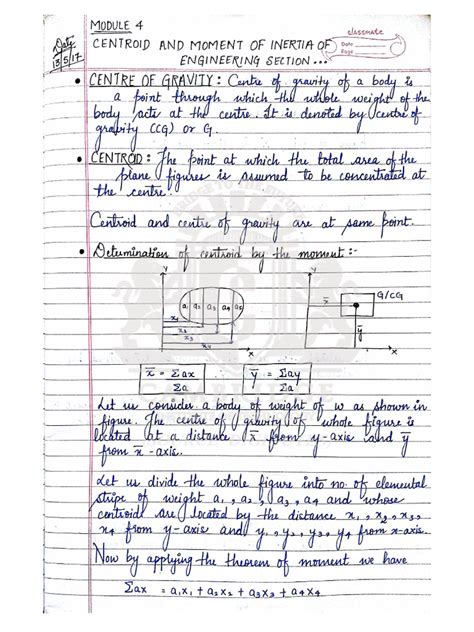 MODULE 4
classmate
Date
Page
Date
13/5/17
CENTROID AND MOMENT OF INERTIA OF
ENGINEERING SECTION...
• CENTRE OF GRAVITY : Centre of gravity of a body is
a point through which the whole weight of the
body acts at the centre. It is denoted by centre of
gravity (CG) or G.
• CENTROID : The point at which the total area of the
plane figures is assumed to be concentrated at
the centre.
Centroid and centre of gravity are at same point.
• Determination of centroid by the moment :-
Y
a₁ a₂ a₃ a₄ a₅
x₁
x₂
x₃
x₄
X
Y
x̅
G/CG
y̅
X
x̅ = Σax / Σa
y̅ = Σay / Σa
Let us consider a body of weight of w as shown in
figure. The centre of gravity of whole figure is
located at a distance x̅ from y-axis and y̅
from x-axis.
Let us divide the whole figure into no. of elemental
strips of weight a₁, a₂, a₃, a₄ and whose
centroids are located by the distance x₁, x₂, x₃,
x₄ from y-axis and y₁, y₂, y₃, y₄ from x-axis.
Now by applying the theorem of moment we have
Σax = a₁x₁ + a₂x₂ + a₃x₃ + a₄x₄